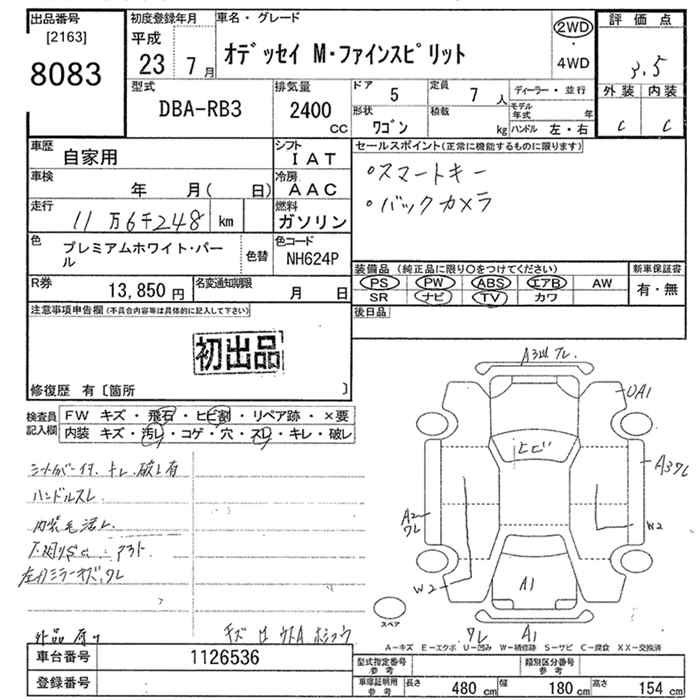 出品番号 [2163] 8083
初度登録年月 平成 23 7月
車名・グレード オデッセイ M・ファインスピリット
2WD・4WD
評価点 3.5
型式 DBA-RB3
排気量 2400 CC
ドア 5
定員 7人
ディーラー・並行
形状 ワゴン
積載 kg
モデル年式 年
ハンドル 左・右
外装 内装
C C
車歴 自家用
シフト IAT
セールスポイント(正常に機能するものに限ります)
車検 年 月( 日)
冷房 AAC
・スマートキー
走行 11万6千248 km
燃料 ガソリン
・バックカメラ
色 プレミアムホワイト・パール
色替
色コード NH624P
装備品 (純正品に限り○をつけてください)
新車保証書
PS PW ABS エアB AW
有・無
SR ナビ TV カワ
R券 13,850円
名変通知期限 月 日
後日品
注意事項申告欄(不具合内容等は具体的に記入して下さい)
初出品
修復歴 有〔箇所 〕
検査員記入欄
FW キズ・飛石・ヒビ割・リペア跡・×要
内装 キズ・汚レ・コゲ・穴・スレ・キレ・破レ
ハンドルスレ
A3 ワレ
UA1
ヒビ
A2 ワレ
W2
W2
A1
スペア
ワレ A1
A-キズ E-エクボ U-凹み W-補修跡 S-サビ C-腐食 XX-交換済
車台番号 1126536
登録番号
型式指定番号 参考
類別区分番号 参考
車庫証明用 参考 長さ 480 cm 幅 180 cm 高さ 154 cm